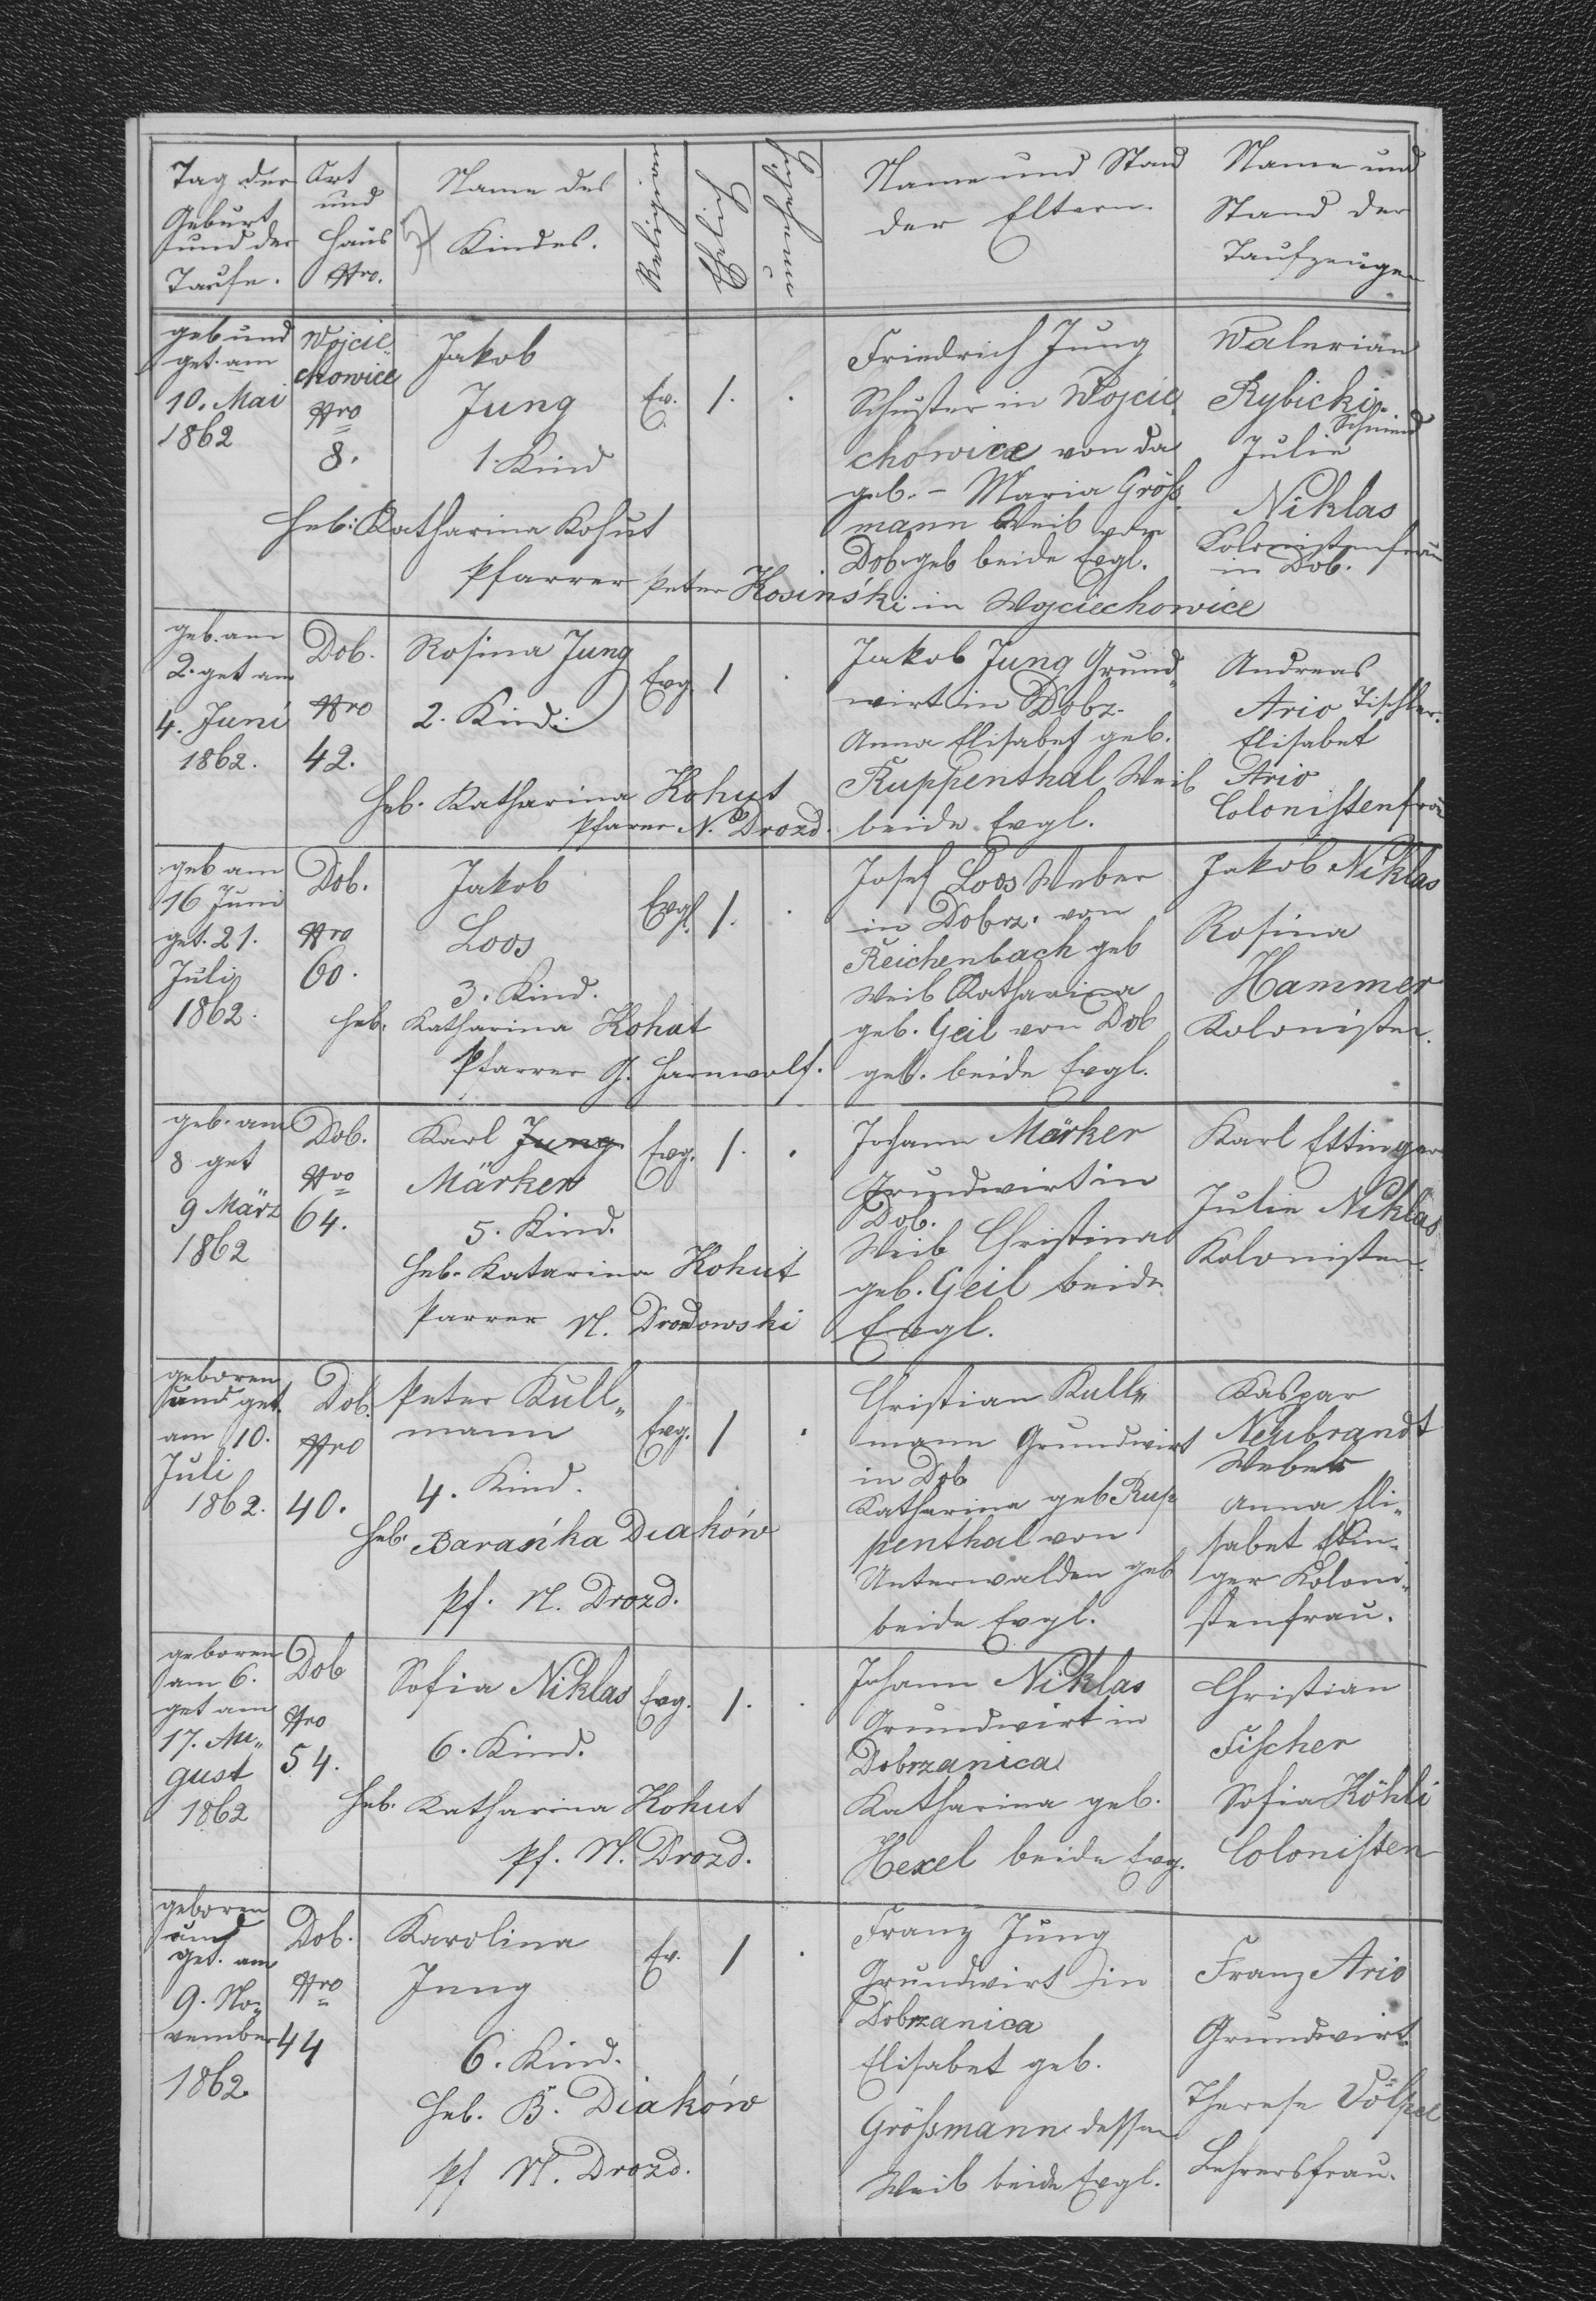 Tag der
Geburt
und der
Taufe.
Ort
und
Haus
Nro.
Name des
Kindes.
Religion
Name und Stand
der Eltern.
Name und
Stand der
Taufzeugen
geb und
get. am
10. Mai
1862
Wojcie
chowice
Nro
8.
Jakob
Jung
1. Kind
Ev.
1.
Heb: Katharina Kohut
Pfarrer Peter Kosiński in Wojciechowice
Friedrich Jung
Schuster in Wojcie
chowice von da
geb. - Maria Größ
mann Weib von
Dob. geb beide Evgl.
Walerian
Rybicki
Schmied
Julie
Niklas
Kolonistenfrau
in Dob.
geb. am
2. get am
4. Juni
1862.
Dob.
Nro
42.
Rosina Jung
2. Kind.
Evg.
1
Heb. Katharina Kohut
Pfarrer N. Drozd.
Jakob Jung Grund„
wirt in Dobz.
Anna Elisabet geb.
Ruppenthal Weib
beide Evgl.
Andreas
Ario Tischler.
Elisabet
Ario
Colonistenfrau
geb am
16 Juni
get. 21.
Juli
1862.
Dob.
Nro
60.
Jakob
Loos
3. Kind.
Evgl.
1.
Heb. Katharina Kohut
Pfarrer J. Harnwolf.
Josef Loos Weber
in Dobrz. von
Reichenbach geb
Weib Katharina
geb. Geil von Dob
geb. beide Evgl.
Jakob Niklas
Rosina
Hammer
Kolonisten.
geb. am
8 get
9 März
1862
Dob.
Nro
64.
Karl Jung
Märker
5. Kind.
Evg.
1.
Heb. Katarina Kohut
Parrer N. Drozdowski
Johann Märker
Grundwirt in
Dob.
Weib Christina
geb. Geil beide
Evgl.
Karl Ettinger
Julie Niklas
Kolonisten.
geboren
und get.
am 10.
Juli
1862.
Dob.
Nro
40.
Peter Kull„
mann
4. Kind.
Evg.
1
Heb. Barańka Diaków
Pf. N. Drozd.
Christian Kull„
mann Grundwirt
in Dob
Katharina geb Rup
penthal von
Unterwalden geb
beide Evgl.
Kaspar
Neubrandt
Weber
Anna Eli„
sabet Ettin„
ger Koloni„
stenfrau.
geboren
am 6.
get am
17. Au„
gust
1862
Dob
Nro
54.
Sofia Niklas
6. Kind.
Evg.
1.
Heb. Katharina Kohut
Pf. N. Drozd.
Johann Niklas
Grundwirt in
Dobrzanica
Katharina geb.
Hexel beide Evg.
Christian
Fischer
Sofia Köhli
Colonisten
geboren
und
get. am
9. No„
vember
1862
Dob.
Nro
44
Karolina
Jung
6. Kind.
Ev.
1
Heb. B. Diaków
Pf N. Drozd.
Franz Jung
Grundwirt in
Dobrzanica
Elisabet geb.
Größmann dessen
Weib beide Evgl.
Franz Ario
Grundwirt.
Therese Völpel
Lehrersfrau.